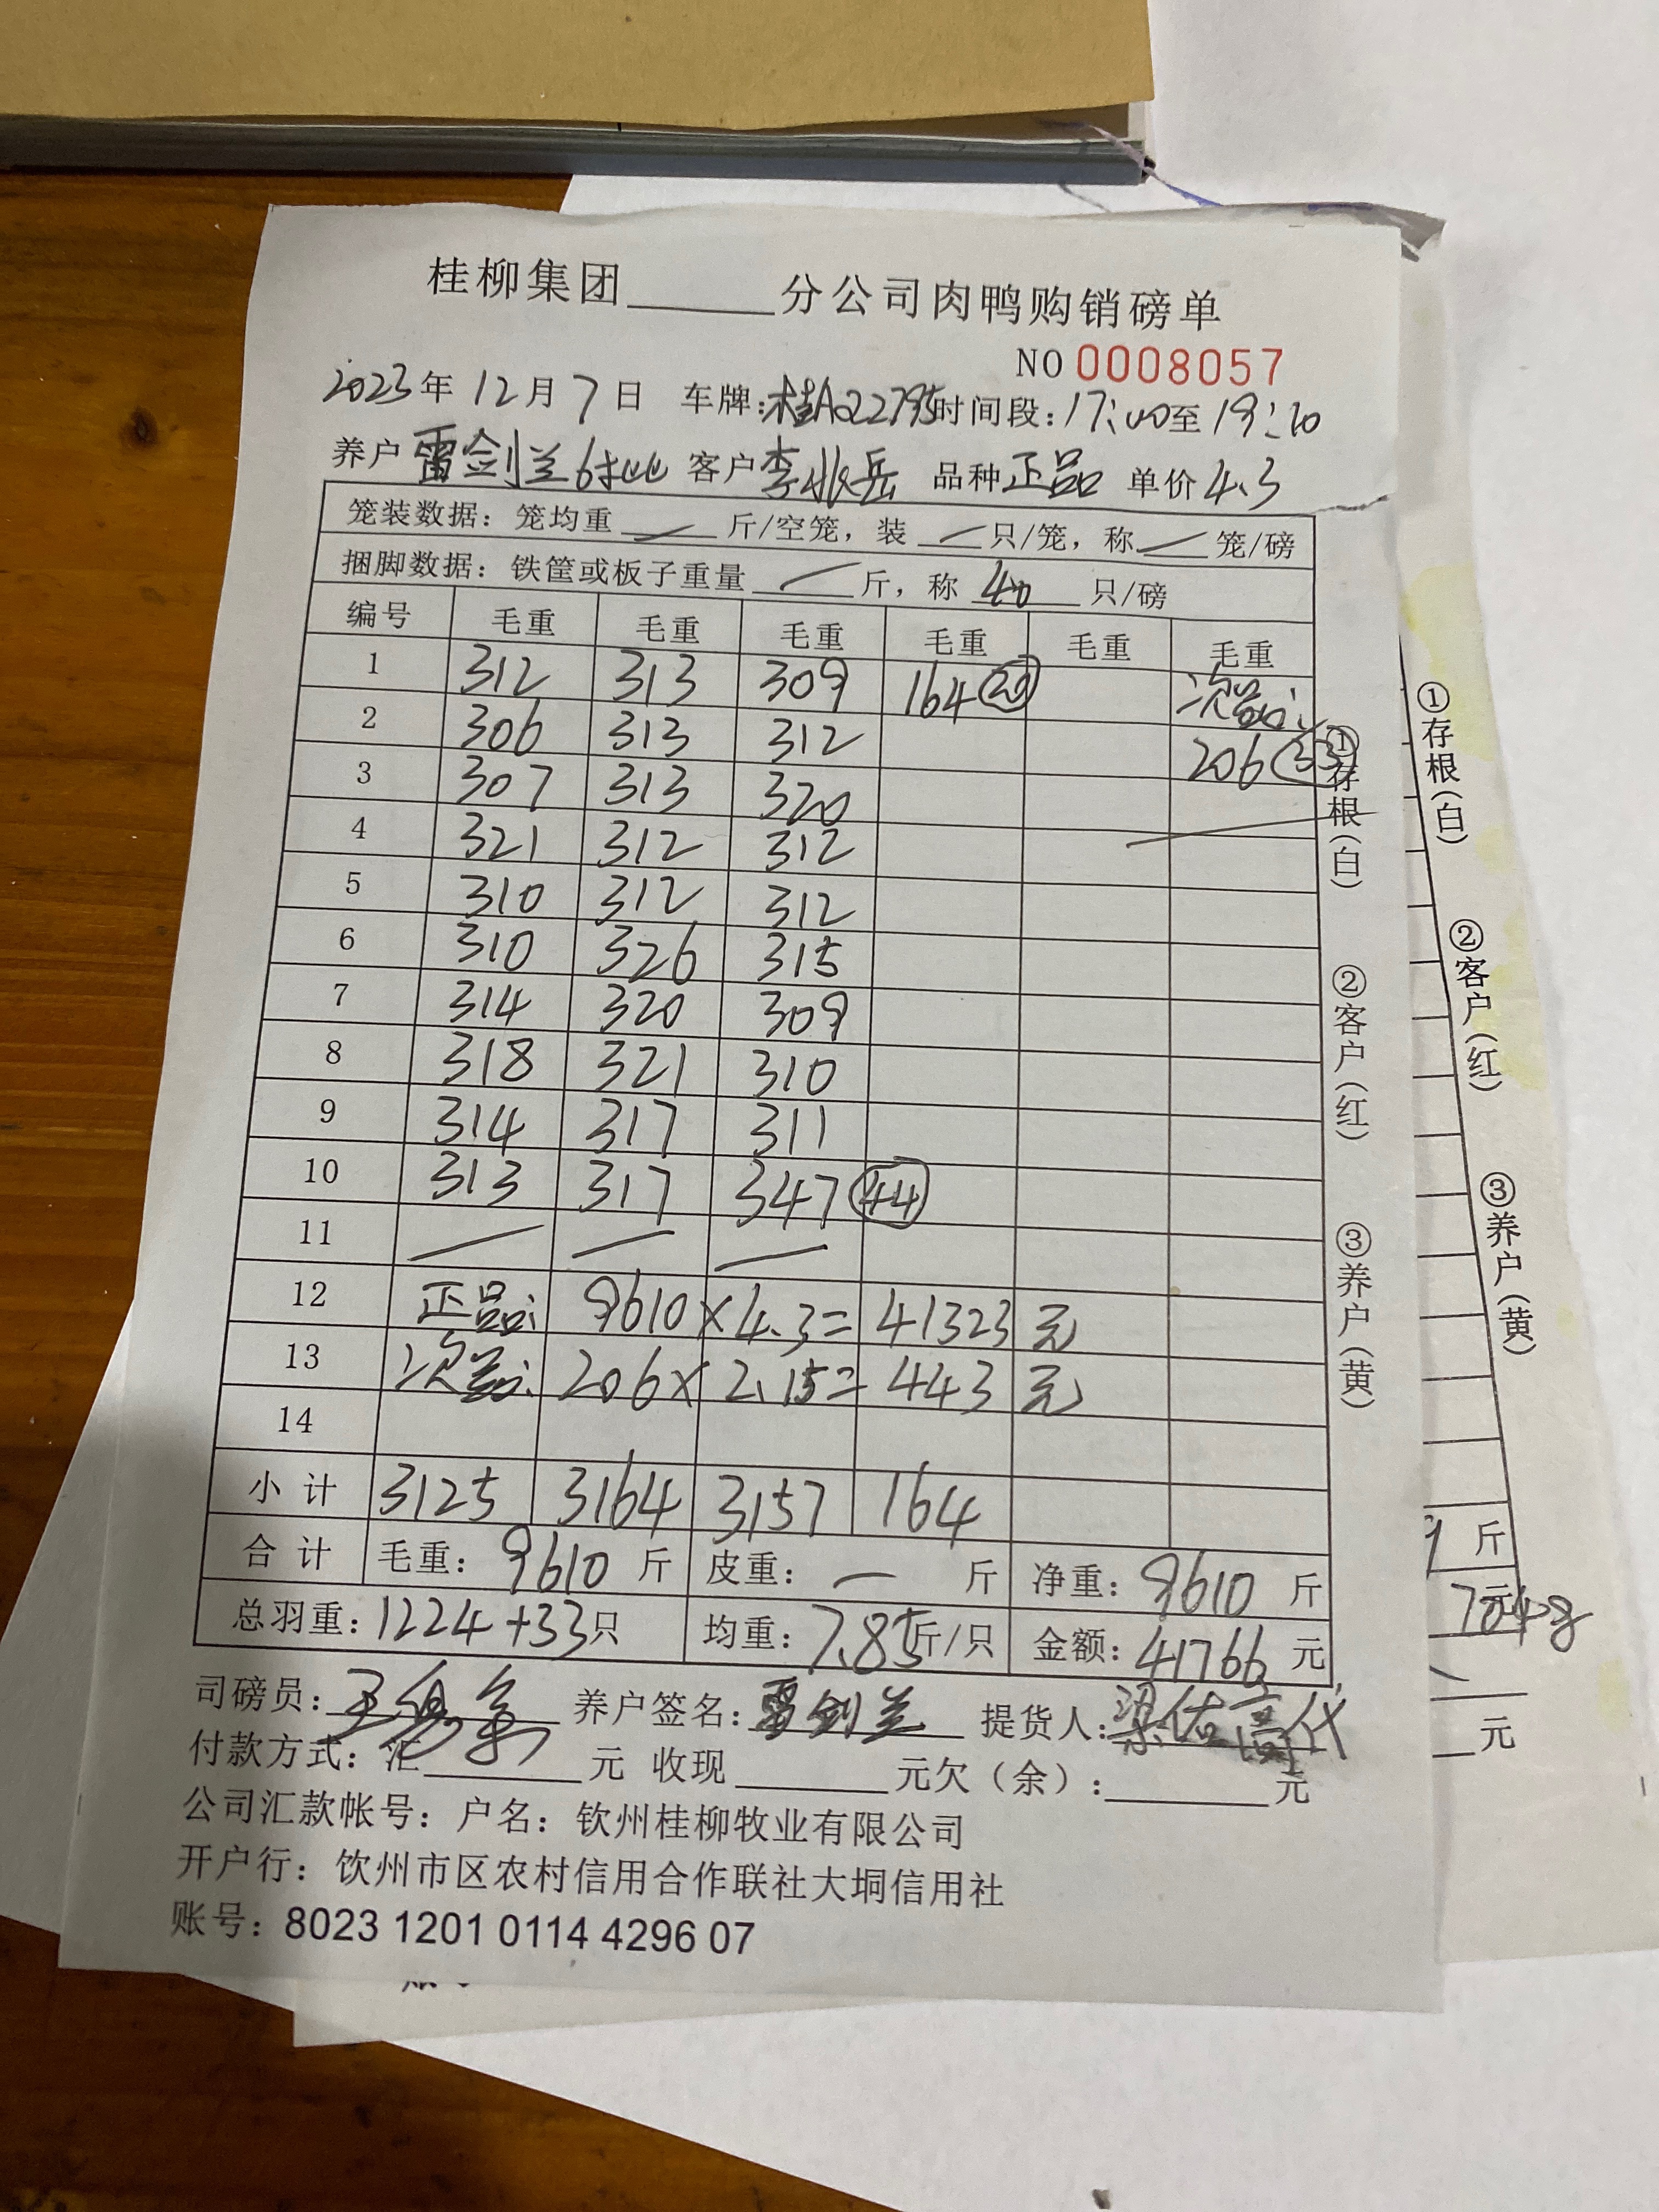 桂柳集团______分公司肉鸭购销磅单
NO 0008057
2023年12月7日 车牌:桂A22795时间段:17:00至19:20
养户 雷剑兰6批 客户 李 岳 品种 正品 单价 4.3
笼装数据: 笼均重 — 斤/空笼, 装 — 只/笼, 称 — 笼/磅
捆脚数据: 铁筐或板子重量 — 斤, 称 40 只/磅
编号 毛重 毛重 毛重 毛重 毛重 毛重
1 312 313 309 164 (20) 次品:
2 306 313 312 206 (33)
3 307 313 320
4 321 312 312
5 310 312 312
6 310 326 315
7 314 320 309
8 318 321 310
9 314 317 311
10 313 317 347 (44)
11 — — —
12 正品: 9610×4.3= 41323 元
13 次品: 206×2.15= 443 元
14
小计 3125 3164 3157 164
合计 毛重: 9610 斤 皮重: — 斤 净重: 9610 斤
总羽重: 1224+33只 均重: 7.85斤/只 金额: 41766 元
司磅员: 养户签名: 雷剑兰 提货人: 梁佑高代
付款方式: 汇______元 收现______元欠(余):______元
公司汇款帐号: 户名: 钦州桂柳牧业有限公司
开户行: 饮州市区农村信用合作联社大垌信用社
账号: 8023 1201 0114 4296 07
①存根(白)
②客户(红)
③养户(黄)
①存根(白)
②客户(红)
③养户(黄)
斤
元
元